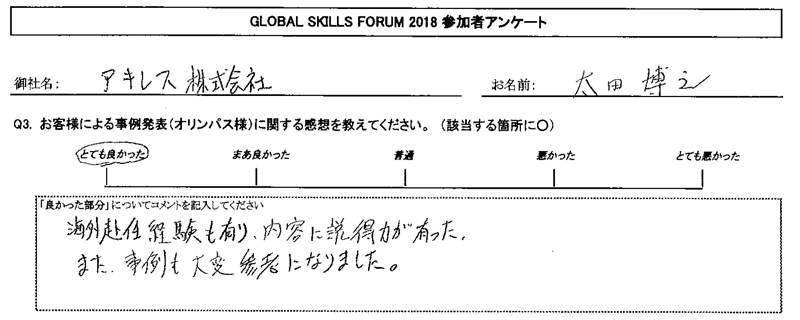 GLOBAL SKILLS FORUM 2018 参加者アンケート
御社名: アキレス株式会社 お名前: 太田博之
Q3. お客様による事例発表(オリンパス様)に関する感想を教えてください。 (該当する箇所に〇)
とても良かった まあ良かった 普通 悪かった とても悪かった
「良かった部分」についてコメントを記入してください
海外赴任経験も有り、内容に説得力が有った.
また、事例も大変参考になりました。